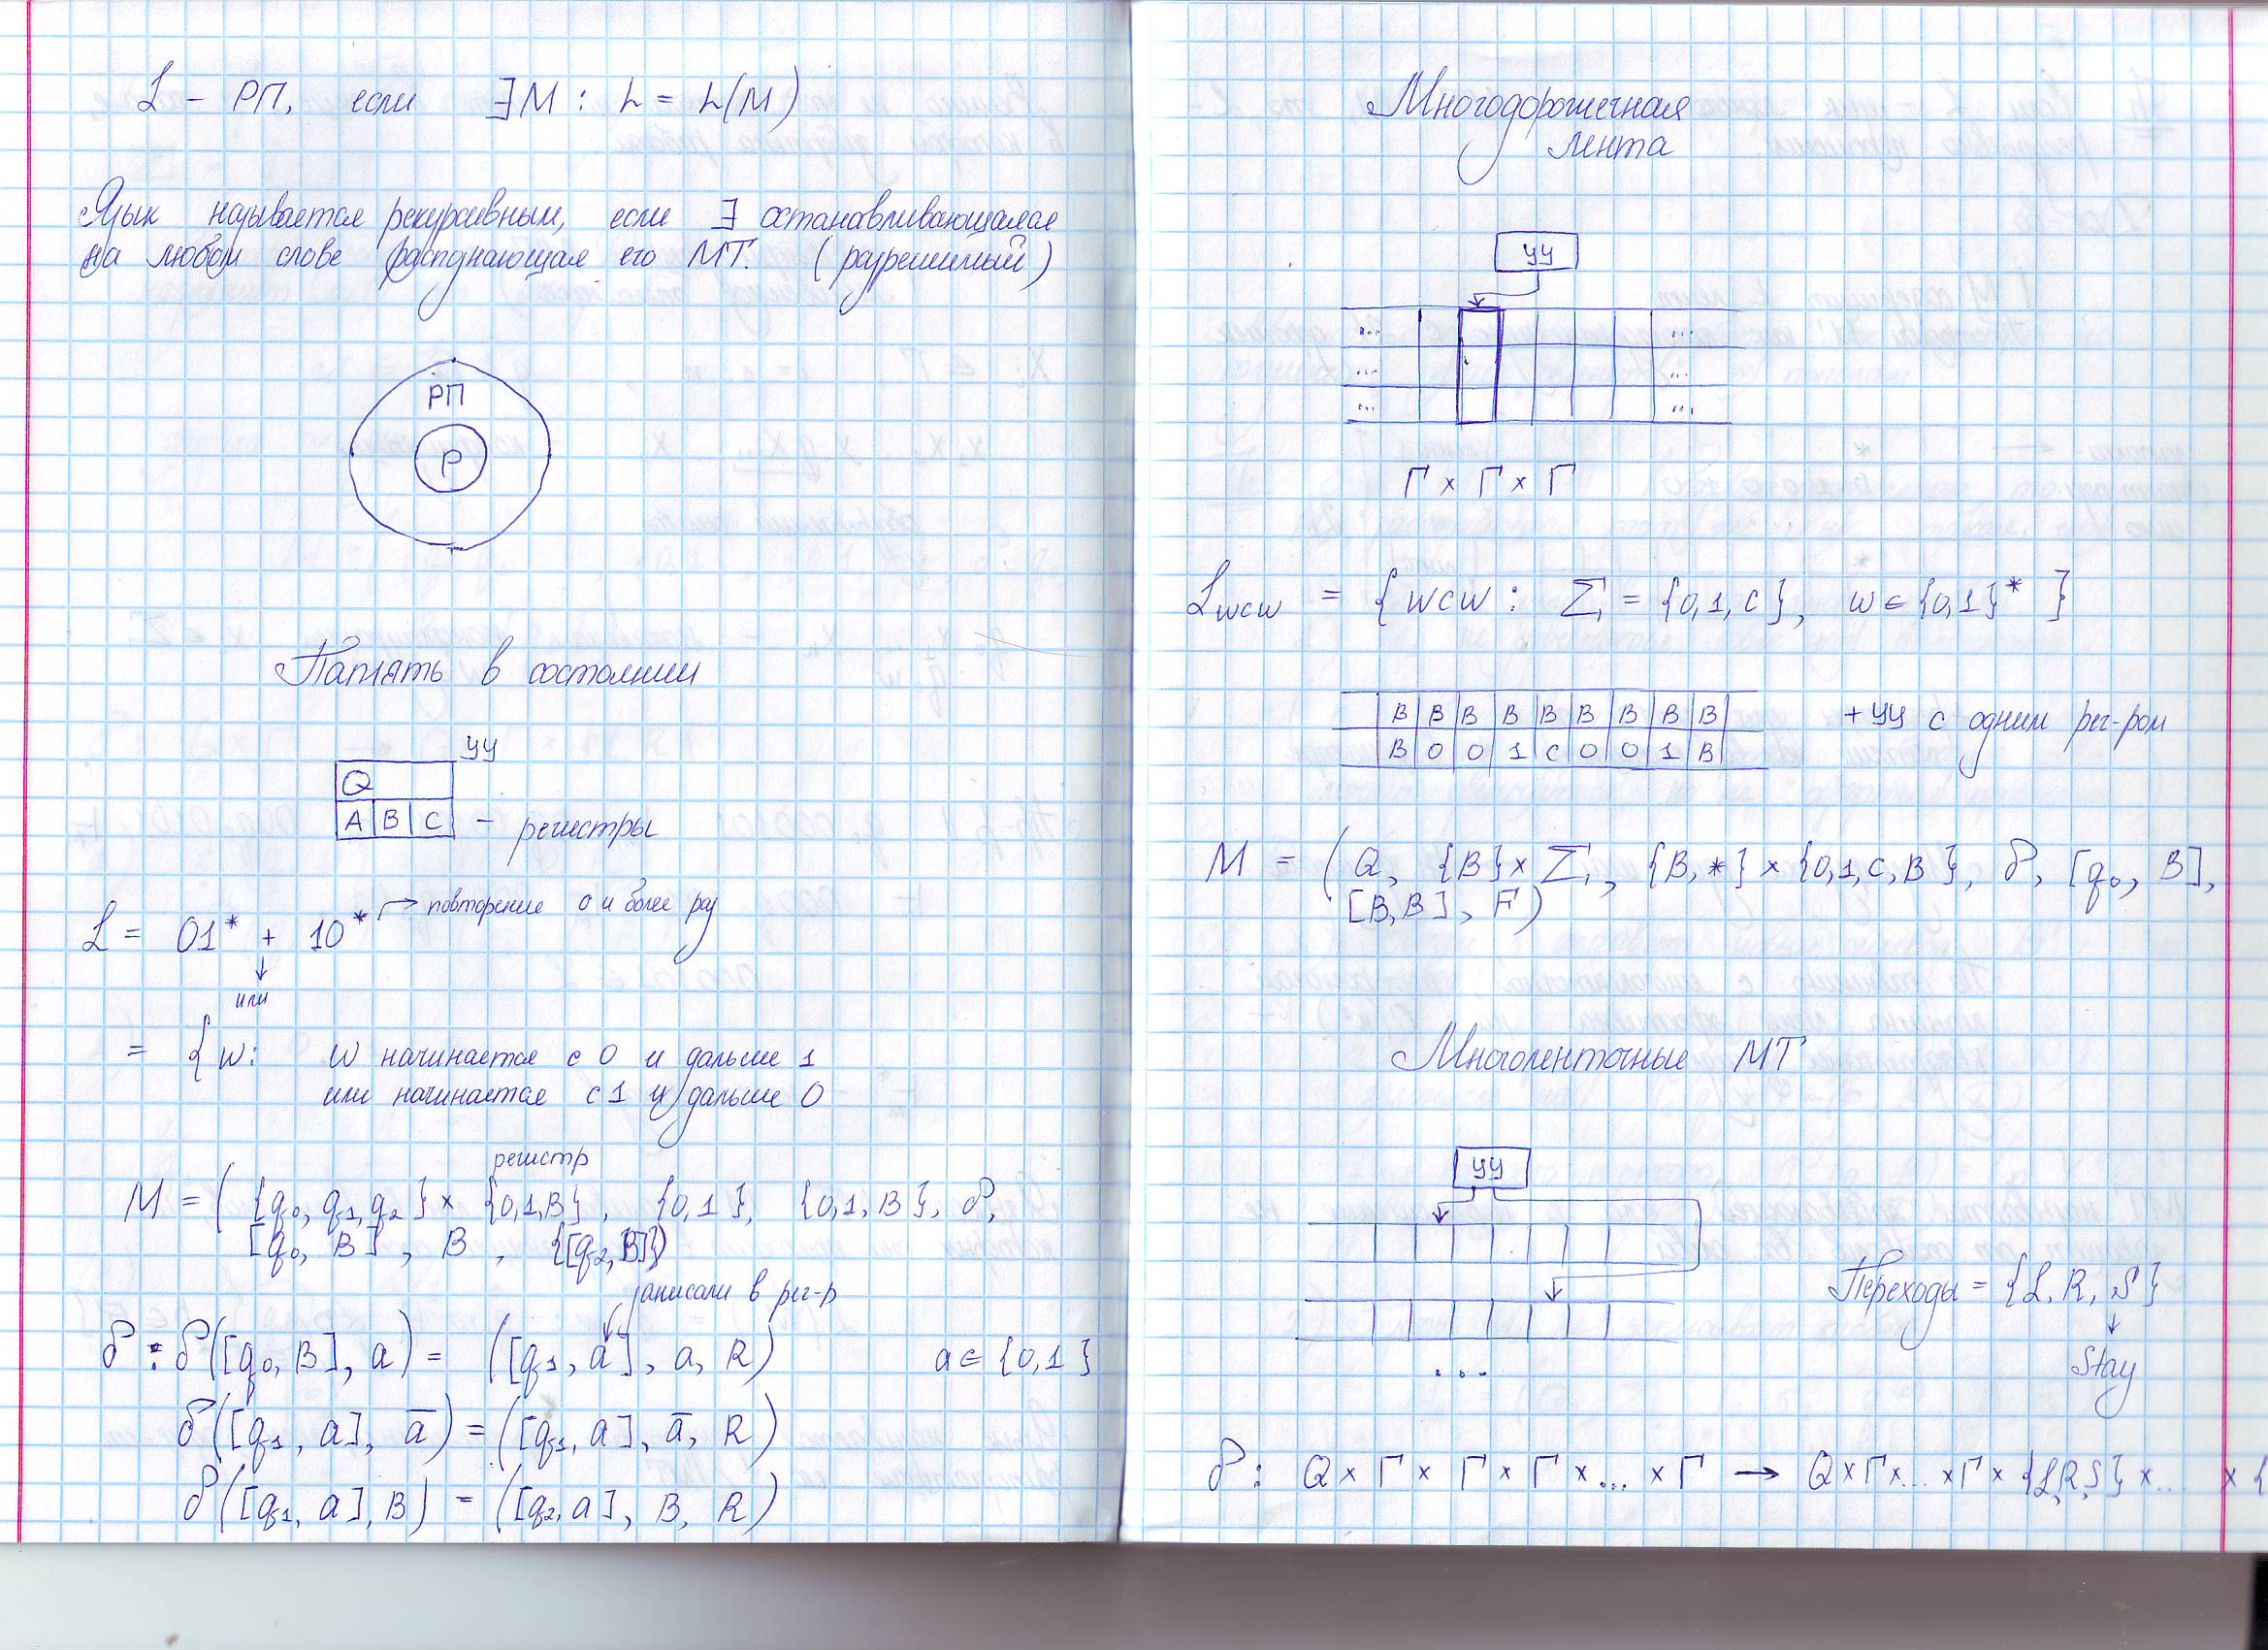 L - РП, если ∃M : L = L(M)
Язык называется рекурсивным, если ∃ останавливающаяся
на любом слове распознающая его МТ. (разрешимый)
РП
Р
Память в состоянии
УУ
Q
A B C - регистры
L = 01* + 10* → повторение 0 и более раз
↓
или
= { w: w начинается с 0 и дальше 1
или начинается с 1 и дальше 0
регистр
M = ( {q₀, q₁, q₂} × {0,1,B}, {0,1}, {0,1,B}, δ,
[q₀, B], B, {[q₂, B]})
записали в рег-р
δ : δ([q₀, B], a) = ([q₁, a], a, R) a ∈ {0,1}
δ([q₁, a], a̅) = ([q₁, a], a̅, R)
δ([q₁, a], B) = ([q₂, a], B, R)
Многодорожечная
лента
УУ
... ...
... ...
... ...
Γ × Γ × Γ
L wcw = { wcw : Σ = {0,1,c}, w ∈ {0,1}* }
B B B B B B B B B + УУ с одним рег-ром
B 0 0 1 c 0 0 1 B
M = ( Q, {B} × Σ, {B,*} × {0,1,c,B}, δ, [q₀, B],
[B,B], F)
Многоленточные МТ
УУ
Переходы = {L, R, S}
↓
Stay
...
δ : Q × Γ × Γ × Γ × ... × Γ → Q × Γ × ... × Γ × {L,R,S} × ... × {